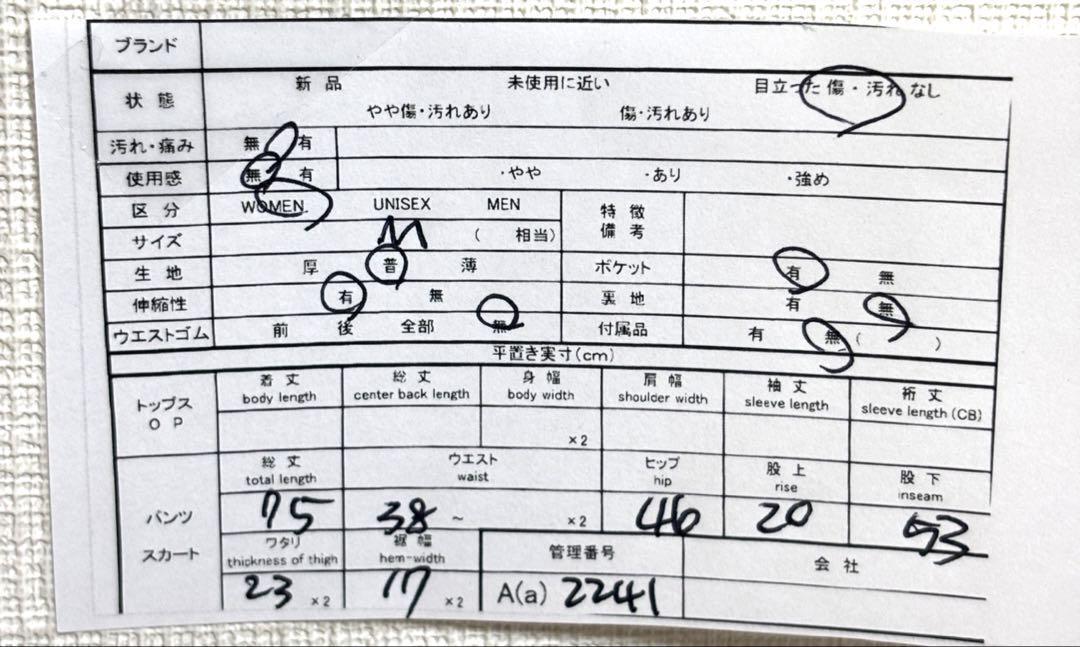 ブランド
状態 新品 未使用に近い 目立った傷・汚れなし
やや傷・汚れあり 傷・汚れあり
汚れ・痛み 無 有
使用感 無 有 ・やや ・あり ・強め
区分 WOMEN UNISEX MEN 特徴
備考
サイズ M ( 相当)
生地 厚 普 薄 ポケット 有 無
伸縮性 有 無 裏地 有 無
ウエストゴム 前 後 全部 無 付属品 有 無 ( )
平置き実寸(cm)
トップス
OP
着丈 総丈 身幅 肩幅 袖丈 裄丈
body length center back length body width shoulder width sleeve length sleeve length (CB)
×2
パンツ
スカート
総丈 ウエスト ヒップ 股上 股下
total length waist hip rise inseam
75 38 ~ ×2 46 20 53
ワタリ 裾幅 管理番号 会社
thickness of thigh hem-width
23 ×2 17 ×2 A(a) 2241